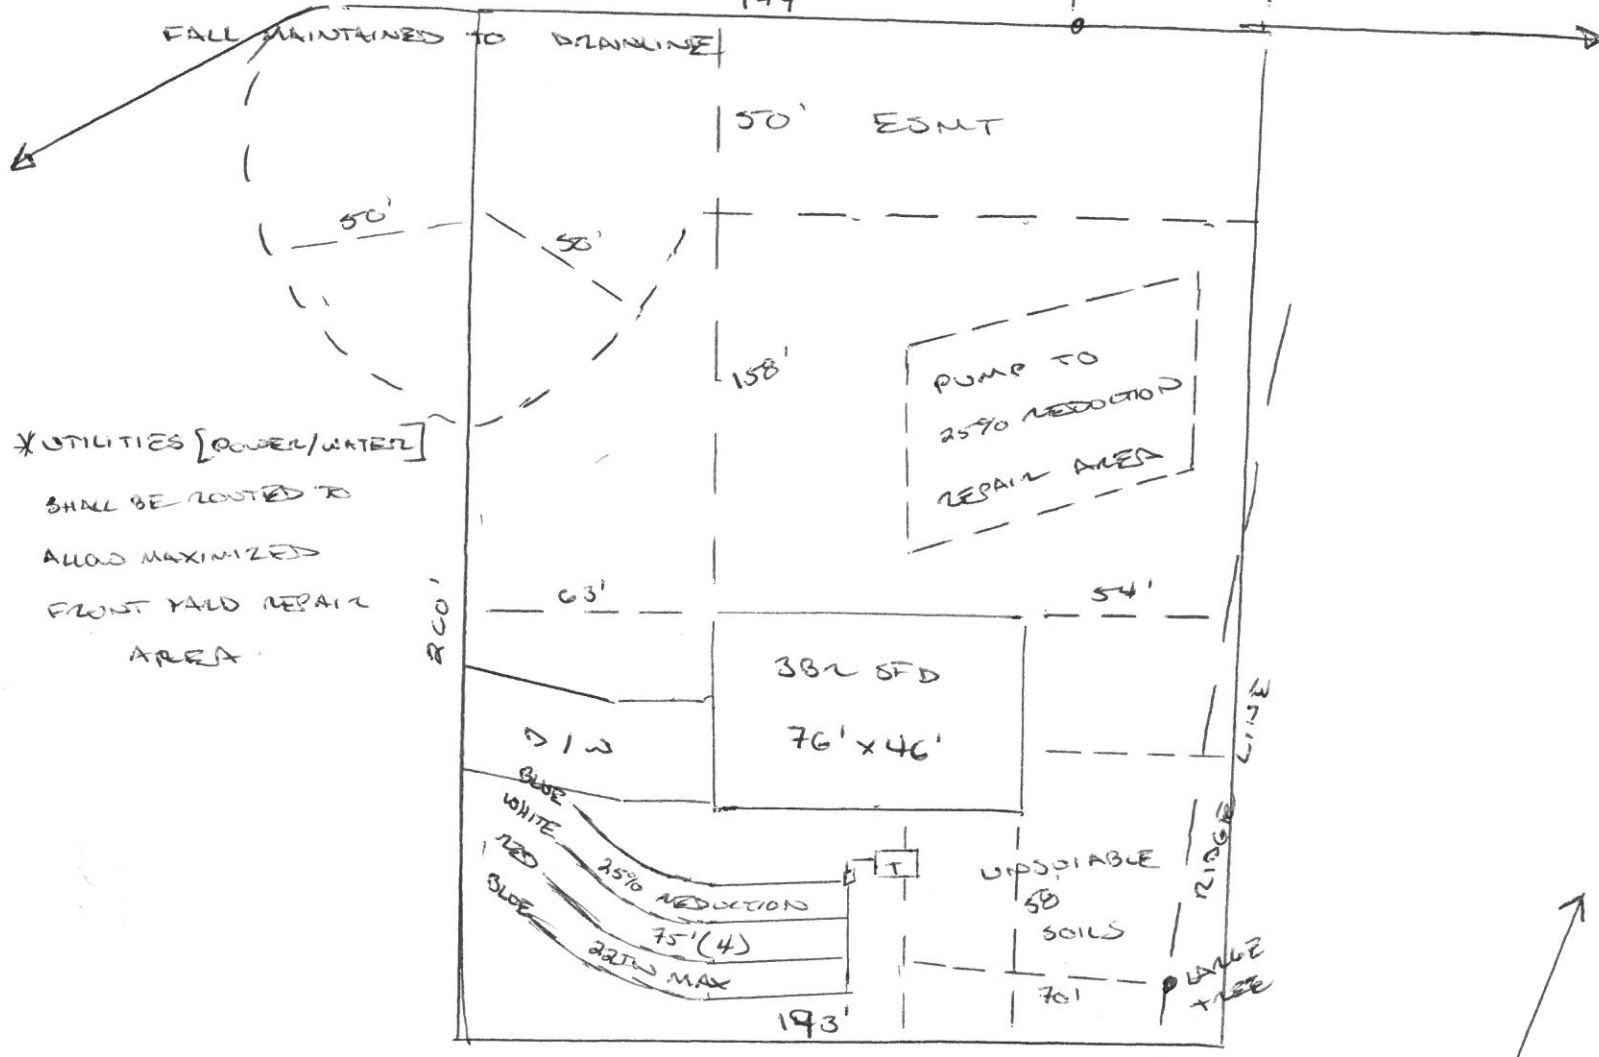 FALL MAINTAINED TO DRAINLINE
50' ESMT
50'
50'
158'
PUMP TO
25% REDUCTION
REPAIR AREA
* UTILITIES [POWER/WATER]
SHALL BE ROUTED TO
ALLOW MAXIMIZED
FRONT YARD REPAIR
AREA
63'
54'
260'
3BR SFD
76' x 46'
D/W
LINE
RIDGE
BLUE
WHITE
RED
BLUE
25%
REDUCTION
75' (4)
22IN MAX
T
UNSUIABLE
58'
SOILS
70'
LARGE
TREE
193'